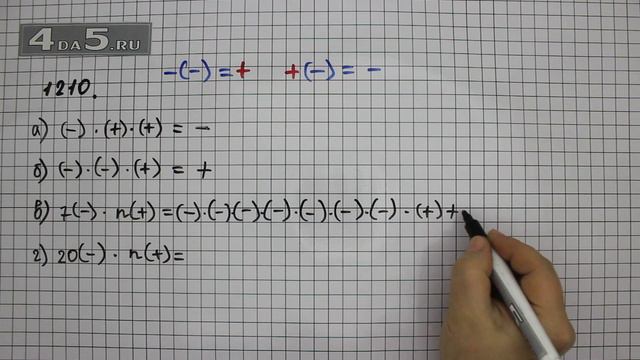 4DA5.RU
-(-) = + +(-) = -
1210.
а) (-) · (+) · (+) = -
б) (-) · (-) · (+) = +
в) 7(-) · n(+) = (-) · (-) · (-) · (-) · (-) · (-) · (-) · (+) +
г) 20(-) · n(+) =